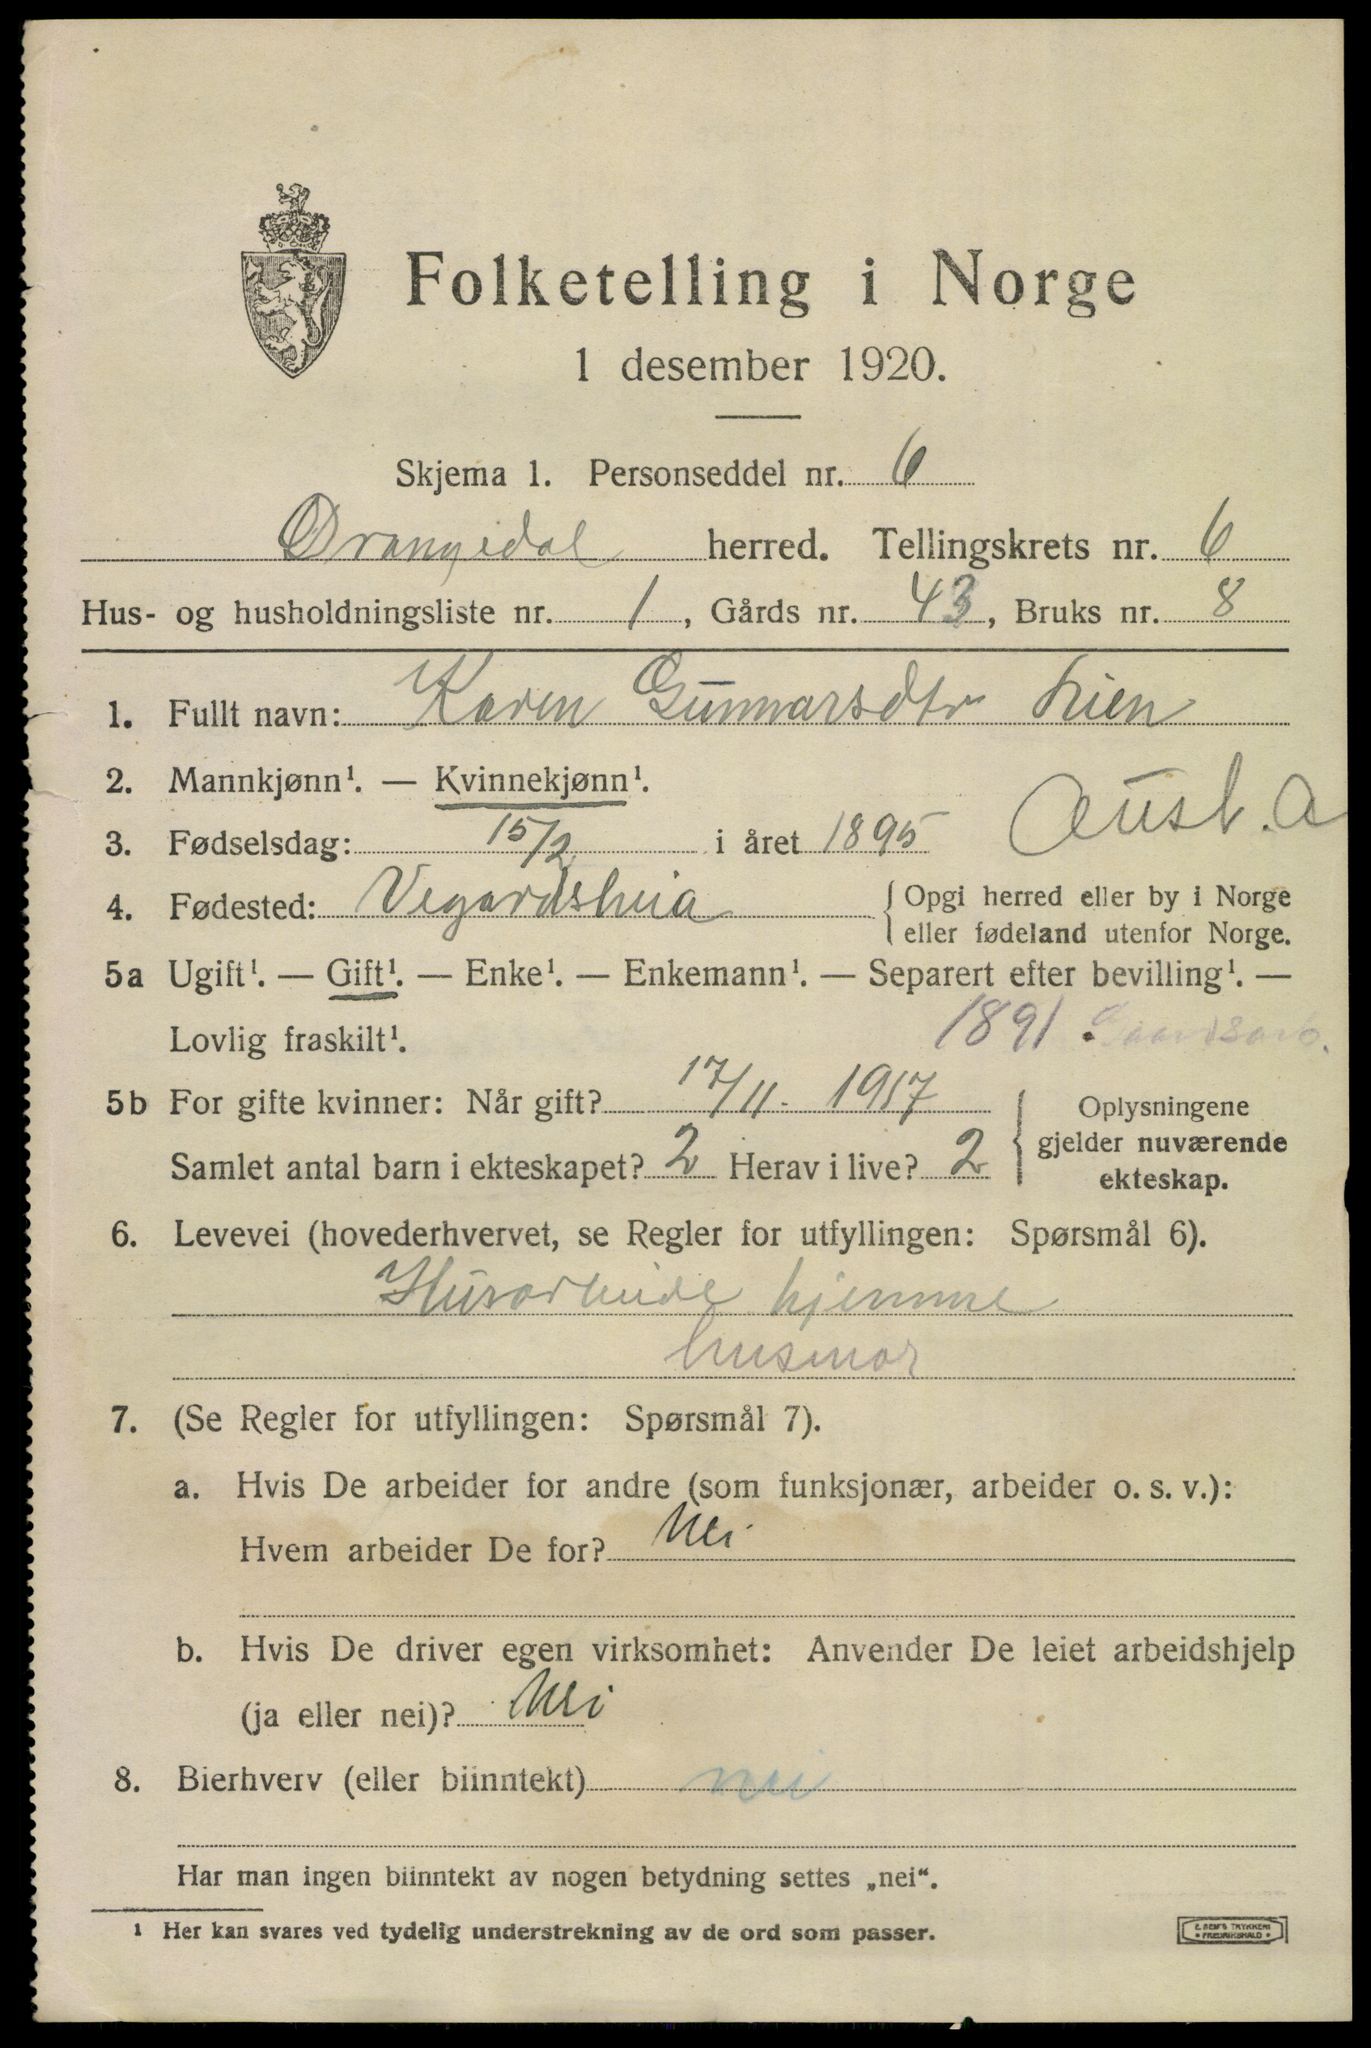 Folketelling i Norge
1 desember 1920.
Skjema 1. Personseddel nr. 6
Drangedal herred. Tellingskrets nr. 6
Hus- og husholdningsliste nr. 1, Gårds nr. 43, Bruks nr. 8
1. Fullt navn: Karen Gunnarsdtr Lien
2. Mannkjønn¹. — Kvinnekjønn¹.
3. Fødselsdag: 15/2 i året 1895 Aust. A
4. Fødested: Vegardsheia { Opgi herred eller by i Norge
eller fødeland utenfor Norge.
5a Ugift¹. — Gift¹. — Enke¹. — Enkemann¹. — Separert efter bevilling¹. —
Lovlig fraskilt¹. 1891
5b For gifte kvinner: Når gift? 17/11. 1917 Oplysningene
gjelder nuværende
Samlet antal barn i ekteskapet? 2 Herav i live? 2 ekteskap.
6. Levevei (hovederhvervet, se Regler for utfyllingen: Spørsmål 6).
Husarbeide hjemme
husmor
7. (Se Regler for utfyllingen: Spørsmål 7).
a. Hvis De arbeider for andre (som funksjonær, arbeider o. s. v.):
Hvem arbeider De for? Nei
b. Hvis De driver egen virksomhet: Anvender De leiet arbeidshjelp
(ja eller nei)? Nei
8. Bierhverv (eller biinntekt) nei
Har man ingen biinntekt av nogen betydning settes „nei“.
¹ Her kan svares ved tydelig understrekning av de ord som passer.
E. SEM'S TRYKKERI
FREDRIKSHALD